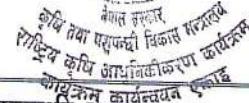 नेपाल सरकार
कृषि तथा पशुपन्छी विकास मन्त्रालय
राष्ट्रिय कृषि आधुनिकीकरण कार्यक्रम
कार्यक्रम कार्यन्वयन एकाइ